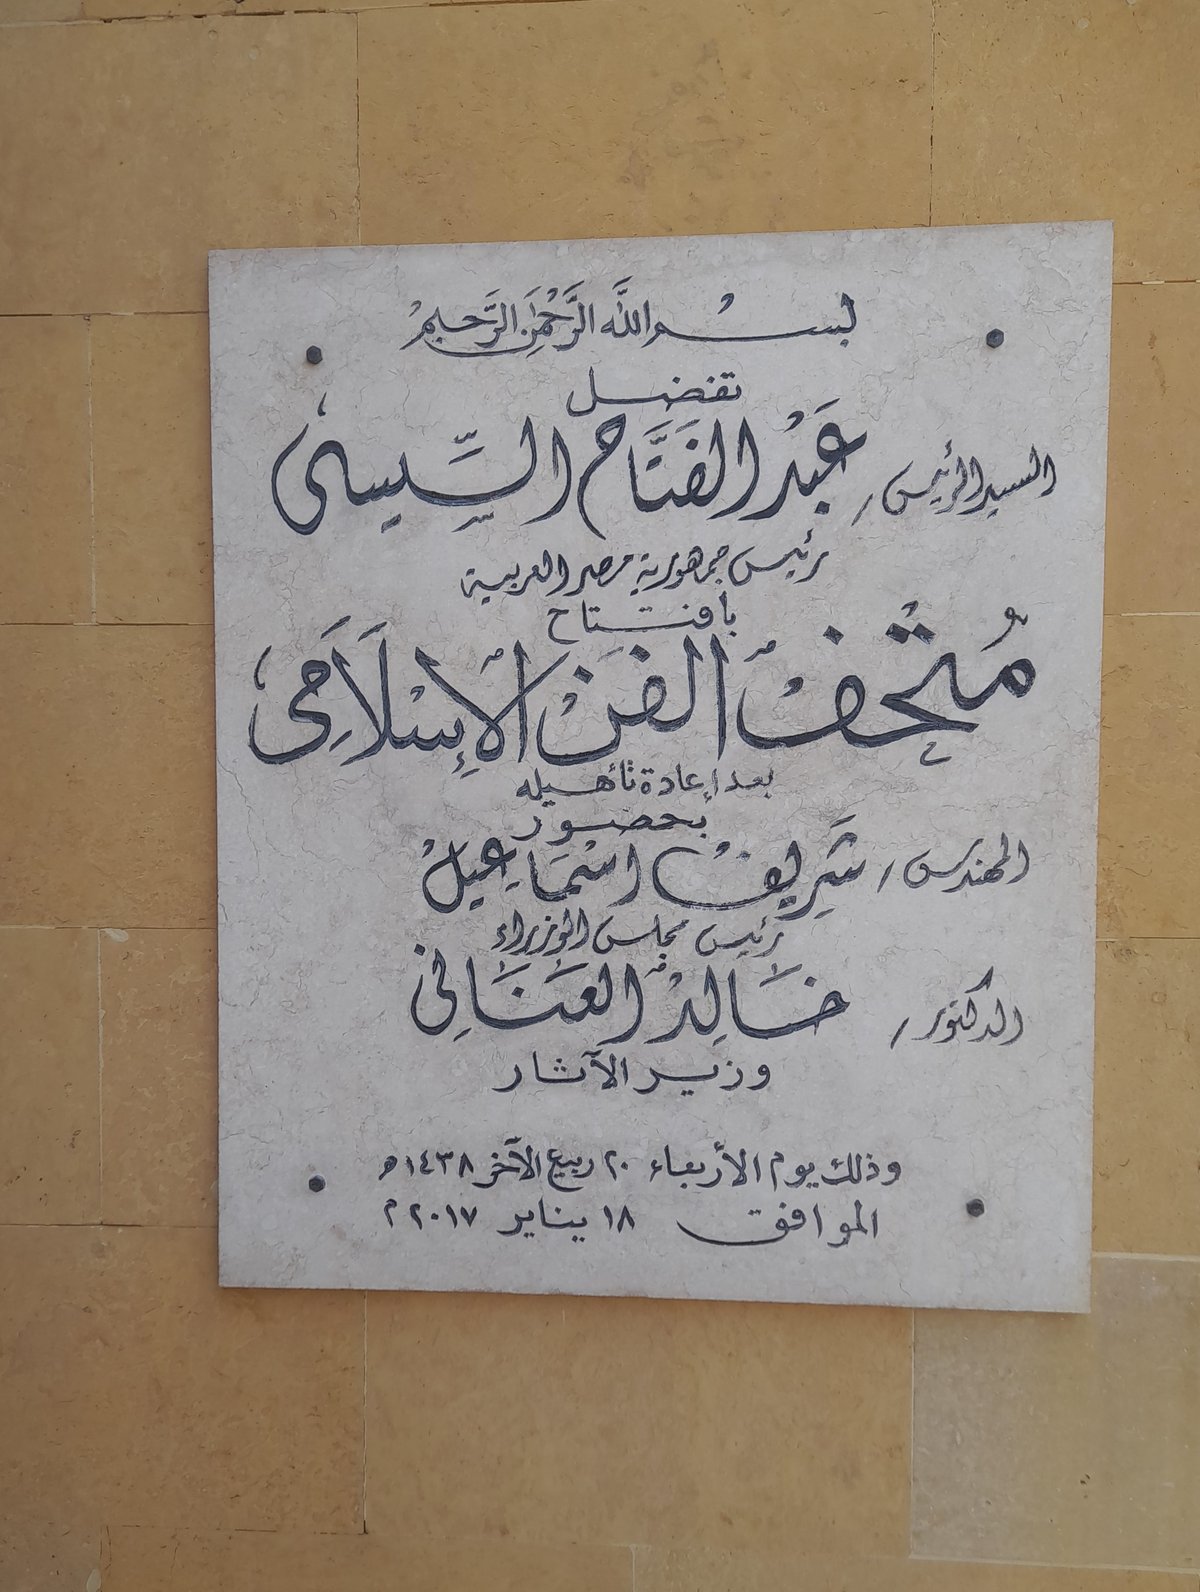 بسم الله الرَّحْمَنِ الرَّحِيمْ
تفضل
السيد الرئيس / عَبْد الفَتَّاح السِّيسى
رئيس جمهورية مصر العربية
بافتتاح
مُتْحَفْ الفَنْ الْإِسْلَامَِى
بعد إعادة تأهيله
بحضور
المهندس / شَرِيفْ اسْمَاعِيلْ
رئيس مجلس الوزراء
الدكتور / خَالِدْ العَنَانِى
وزير الآثار
وذلك يوم الأربعاء ٢٠ ربيع الآخر ١٤٣٨ه
الموافق ١٨ يناير ٢٠١٧ م